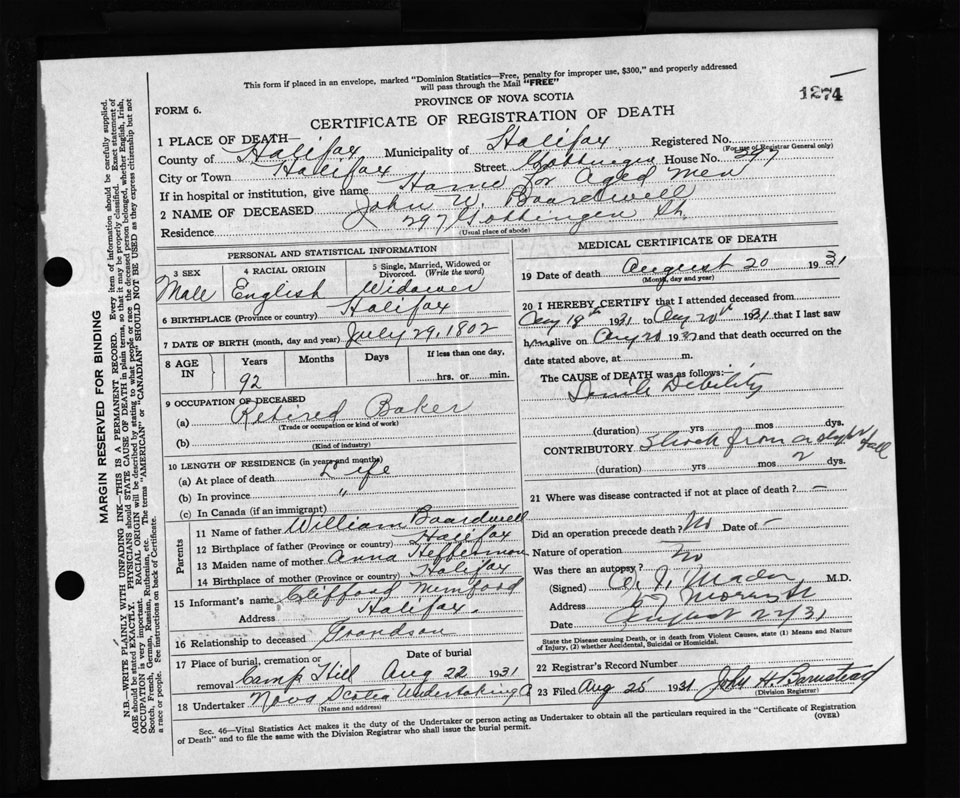 This form if placed in an envelope, marked "Dominion Statistics—Free, penalty for improper use, $300," and properly addressed
will pass through the Mail "FREE"
1274
FORM 6.
PROVINCE OF NOVA SCOTIA
CERTIFICATE OF REGISTRATION OF DEATH
1 PLACE OF DEATH—
County of Halifax Municipality of Halifax Registered No.
(For use of Registrar General only)
City or Town Halifax Street Gottingen House No. 297
If in hospital or institution, give name Home for Aged Men
2 NAME OF DECEASED John W. Boardwell
Residence 297 Gottingen St.
(Usual place of abode)
PERSONAL AND STATISTICAL INFORMATION
3 SEX 4 RACIAL ORIGIN 5 Single, Married, Widowed or
Divorced. (Write the word)
Male English Widower
6 BIRTHPLACE (Province or country) Halifax
7 DATE OF BIRTH (month, day and year) July 29, 1802
8 AGE IN Years Months Days If less than one day,
92 hrs. or min.
9 OCCUPATION OF DECEASED
(a) Retired Baker
(Trade or occupation or kind of work)
(b)
(Kind of industry)
10 LENGTH OF RESIDENCE (in years and months)
(a) At place of death Life
(b) In province "
(c) In Canada (if an immigrant)
Parents
11 Name of father William Boardwell
12 Birthplace of father (Province or country) Halifax
13 Maiden name of mother Anna Heffernon
14 Birthplace of mother (Province or country) Halifax
15 Informant's name Clifford Mumford
Address Halifax.
16 Relationship to deceased Grandson
17 Place of burial, cremation or Date of burial
removal Camp Hill Aug 22 1931
18 Undertaker Nova Scotia Undertaking
(Name and address)
MEDICAL CERTIFICATE OF DEATH
19 Date of death August 20 1931
(Month, day and year)
20 I HEREBY CERTIFY that I attended deceased from
Aug 18th 1931 to Aug 20th 1931 that I last saw
him alive on Aug 20 1931 and that death occurred on the
date stated above, at m.
The CAUSE of DEATH was as follows:
Senile Debility
(duration) yrs mos dys.
CONTRIBUTORY Shock from a slight fall
(duration) yrs mos 2 dys.
21 Where was disease contracted if not at place of death? —
Did an operation precede death? No Date of —
Nature of operation
Was there an autopsy? No
(Signed) Mader M.D.
Address Morris St
Date August 22/31
State the Disease causing Death, or in death from Violent Causes, state (1) Means and Nature
of Injury, (2) whether Accidental, Suicidal or Homicidal.
22 Registrar's Record Number
23 Filed Aug 25 1931 John H. Barnstead
(Division Registrar)
Sec. 46—Vital Statistics Act makes it the duty of the Undertaker or person acting as Undertaker to obtain all the particulars required in the "Certificate of Registration
of Death" and to file the same with the Division Registrar who shall issue the burial permit.
(OVER)
MARGIN RESERVED FOR BINDING
N.B.—WRITE PLAINLY WITH UNFADING INK—THIS IS A PERMANENT RECORD. Every item of information should be carefully supplied.
AGE should be stated EXACTLY. PHYSICIANS should STATE CAUSE OF DEATH in plain terms, so that it may be properly classified. Exact statement of
OCCUPATION is very important. RACIAL ORIGIN will be described by stating to what people or race the deceased person belonged, whether English, Irish,
Scotch, French, German, Russian, Ruthenian, etc. The terms "AMERICAN" or "CANADIAN" SHOULD NOT BE USED as they express citizenship but not
a race or people. See instructions on back of Certificate.